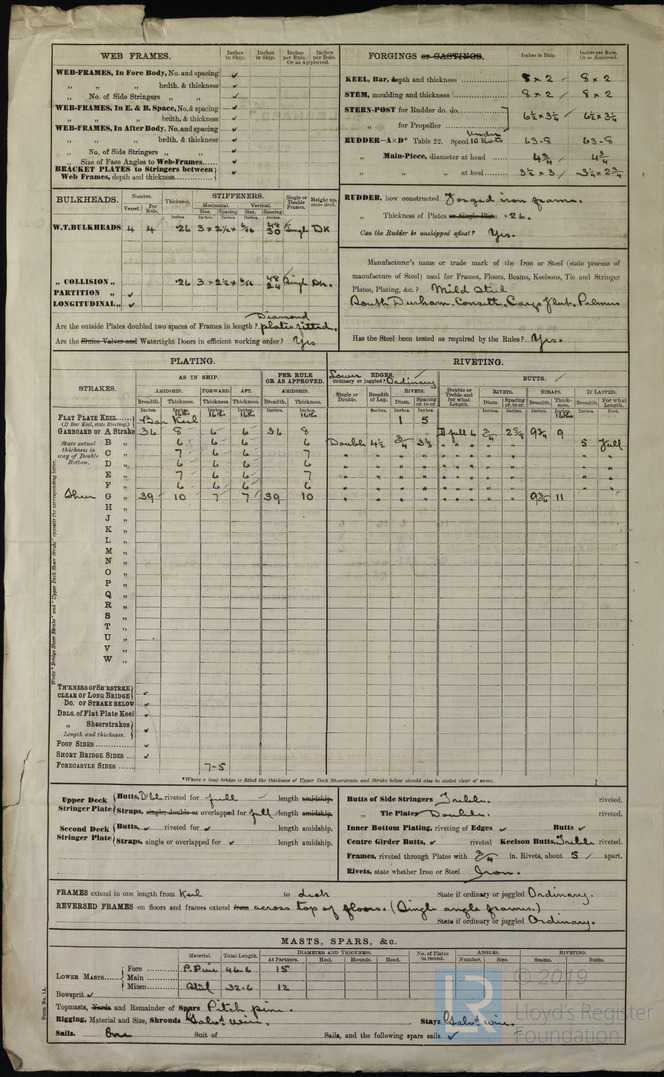 WEB FRAMES.
Inches in Ship. Inches in Ship. Inches per Rule. Or as Approved. Inches per Rule.
WEB-FRAMES, In Fore Body, No. and spacing ✓
„ „ brdth. & thickness ✓
„ No. of Side Stringers „ „ ✓
WEB-FRAMES, In E. & B. Space, No. & spacing ✓
„ „ brdth. & thickness ✓
WEB-FRAMES, In After Body, No. and spacing ✓
„ „ brdth. & thickness ✓
„ No. of Side Stringers „ „ ✓
„ Size of Face Angles to Web-Frames ✓
BRACKET PLATES to Stringers between Web Frames, depth and thickness ✓
FORGINGS or CASTINGS.
Inches in Ship. Inches per Rule. Or as Approved.
KEEL, Bar, depth and thickness 8 x 2 8 x 2
STEM, moulding and thickness 8 x 2 8 x 2
STERN-POST for Rudder do. do. 6½ x 3½ 6½ x 3½
„ for Propeller
RUDDER—A×Dⁿ Table 22. Speed Under 10 Knots 63-8 63-8
„ Main-Piece, diameter at head 4¾ 4¾
„ „ at heel 3½ x 3 3½ x 2¾
BULKHEADS. Number. Vessel. Per Rule. Thickness. STIFFENERS. Horizontal. Size. Spacing Vertical. Size. Spacing Single or Double Frames. Height up, state deck.
W.T. BULKHEADS 4 4 ·26 3 x 2½ x 5/16 48 30 Single DK
„ COLLISION „ ·26 3 x 2½ x 5/16 48 24 Single DK.
PARTITION „ ✓
LONGITUDINAL „ ✓
Diamond
Are the outside Plates doubled two spaces of Frames in length? plates fitted.
Are the Sluice Valves and Watertight Doors in efficient working order? Yes
RUDDER, how constructed Forged iron frame.
„ Thickness of Plates or Single Plate ·26.
Can the Rudder be unshipped afloat? Yes.
Manufacturer's name or trade mark of the Iron or Steel (state process of
manufacture of Steel) used for Frames, Floors, Beams, Keelsons, Tie and Stringer
Plates, Plating, &c.? Mild Steel
South Durham. Consett. Cargo Fleet. Palmers
Has the Steel been tested as required by the Rules? Yes.
PLATING.
RIVETING.
STRAKES. AS IN SHIP. AMIDSHIP. Breadth. Thickness. FORWARD. Thickness. AFT. Thickness. PER RULE OR AS APPROVED. AMIDSHIP. Breadth. Thickness.
Lower EDGES. Ordinary or joggled? Ordinary Single or Double. Breadth of Lap. RIVETS. Diam. Spacing cr. to cr.
BUTTS. Double or Treble and for what Length. RIVETS. Diam. Spacing cr. to cr. STRAPS. Breadth. Thickness. IF LAPPED. Breadth. For what Length.
FLAT PLATE KEEL (If Bar Keel, state Riveting.) Bar Keel 1 5
GARBOARD or A Strake 36 8 6 6 36 8
State actual thickness in way of Double Bottom.
B „ 6 6 6 6 Double 4½ ¾ 3½ 5 full
C „ 7 6 6 7
D „ 6 6 6 6
E „ 7 6 6 7
F „ 6 6 6 6
Sheer G „ 39 10 7 7 39 10 11
H
J „
K „
L „
M „
N „
O „
P „
Q „
R „
S „
T „
U „
V „
W „
Write "Bridge Sheer Strake" and "Upper Deck Sheer Strake" opposite the corresponding letter.
THCKNESS OF SH'RSTRKE CLEAR OF LONG BRIDGE ✓
DO. OF STRAKE BELOW ✓
DBLG. of Flat Plate Keel ✓
„ Sheerstrakes ✓
Length and thickness.
POOP SIDES ✓
SHORT BRIDGE SIDES ✓
FORECASTLE SIDES 7-5
*Where a long bridge is fitted the thickness of Upper Deck Sheerstrake and Strake below should also be stated clear of same.
Upper Deck Stringer Plate Butts, Dble riveted for full length amidship.
Straps, single, double or overlapped for full length amidship.
Second Deck Stringer Plate Butts, ✓ riveted for ✓ length amidship.
Straps, single or overlapped for ✓ length amidship.
Butts of Side Stringers Treble. riveted.
„ Tie Plates Double. riveted.
Inner Bottom Plating, riveting of Edges ✓ Butts ✓
Centre Girder Butts, ✓ riveted Keelson Butts, Treble riveted.
Frames, riveted through Plates with ¾ in. Rivets, about 5 apart.
Rivets, state whether Iron or Steel Iron.
FRAMES extend in one length from Keel to deck State if ordinary or joggled Ordinary.
REVERSED FRAMES on floors and frames extend from across top of floors. (Single angle frames.)
State if ordinary or joggled Ordinary.
MASTS, SPARS, &c.
Material. Total Length. DIAMETER AND THICKNESS. At Partners. Heel. Hounds. Head. No. of Plates in round. ANGLES. Number. Size. RIVETING. Seams. Butts.
LOWER MASTS Fore P. Pine 46-6 15
Main
Mizen Steel 32-6 12
Bowsprit ✓
Topmasts, Yards and Remainder of Spars Pitch pine.
Rigging, Material and Size, Shrouds Galvd wire. Stays Galvd wire.
Sails. One Suit of Sails, and the following spare sails ✓
Form No. 1A.
© 2019
LR
Lloyd's Register
Foundation